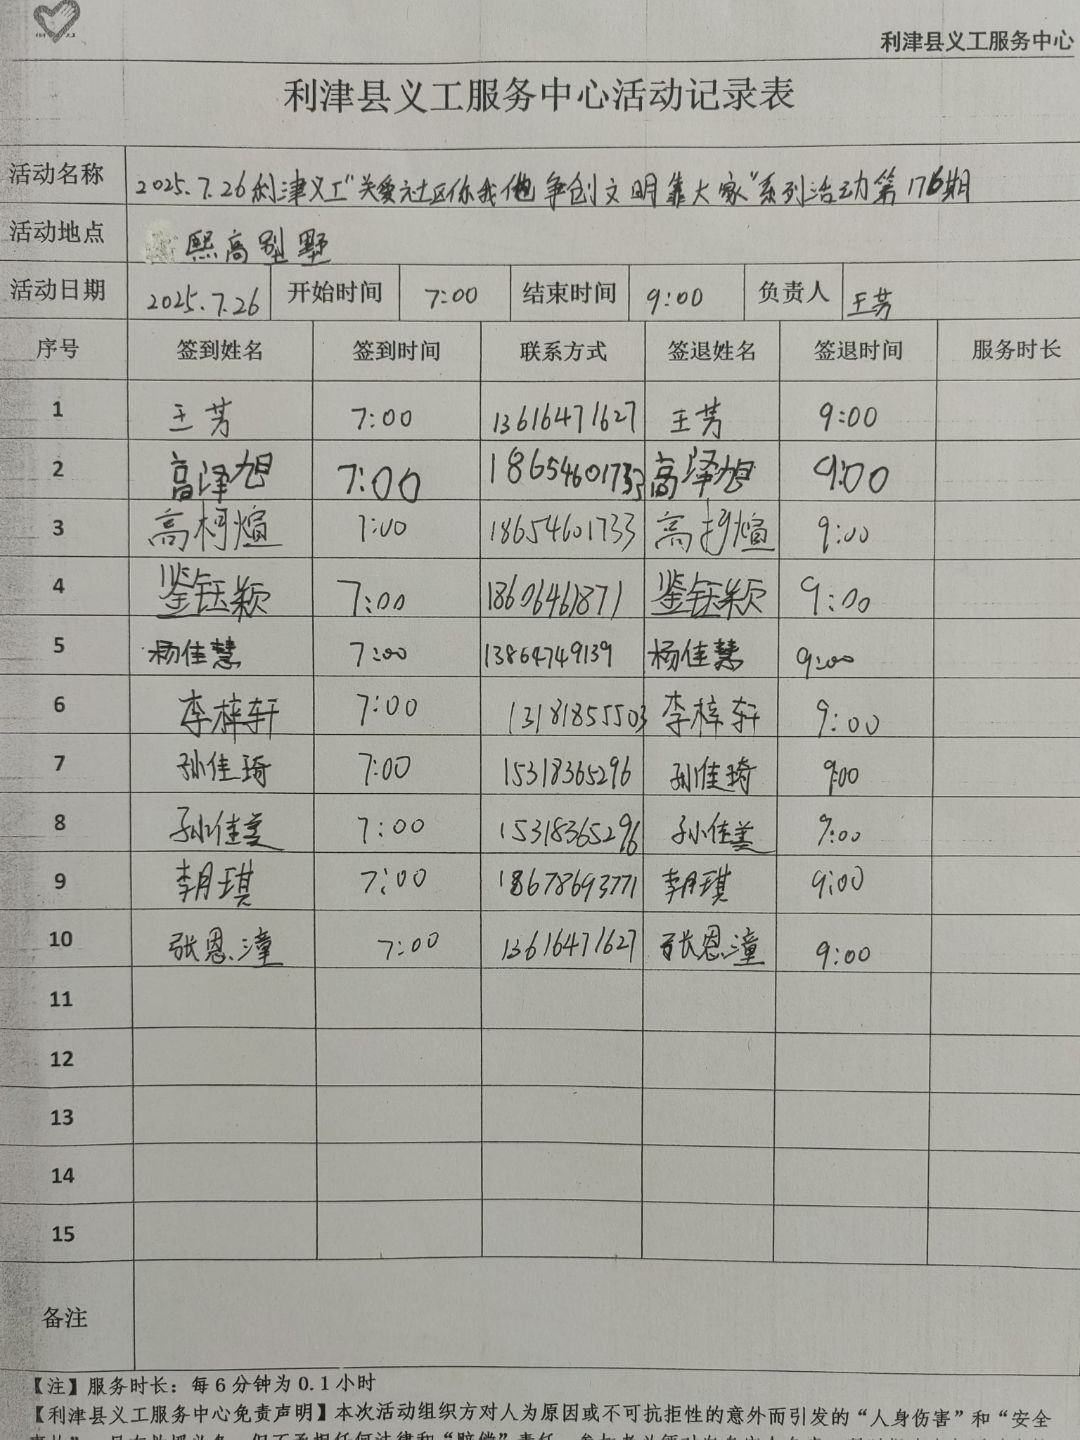 利津县义工服务中心
利津县义工服务中心活动记录表
活动名称 2025.7.26利津义工"关爱社区你我他 争创文明靠大家"系列活动第176期
活动地点 熙高别墅
活动日期 2025.7.26 开始时间 7:00 结束时间 9:00 负责人 王芳
序号 签到姓名 签到时间 联系方式 签退姓名 签退时间 服务时长
1 王芳 7:00 13616471627 王芳 9:00
2 高泽旭 7:00 18654601733 高泽旭 9:00
3 高柯煊 7:00 18654601733 高柯煊 9:00
4 鉴钰颖 7:00 18606461871 鉴钰颖 9:00
5 杨佳慧 7:00 13864749139 杨佳慧 9:00
6 李梓轩 7:00 13181855503 李梓轩 9:00
7 孙佳琦 7:00 15318365296 孙佳琦 9:00
8 孙佳美 7:00 15318365296 孙佳美 9:00
9 李月琪 7:00 18678693771 李月琪 9:00
10 张恩潼 7:00 13616471627 张恩潼 9:00
11
12
13
14
15
备注
【注】服务时长：每6分钟为0.1小时
【利津县义工服务中心免责声明】本次活动组织方对人为原因或不可抗拒性的意外而引发的“人身伤害”和“安全